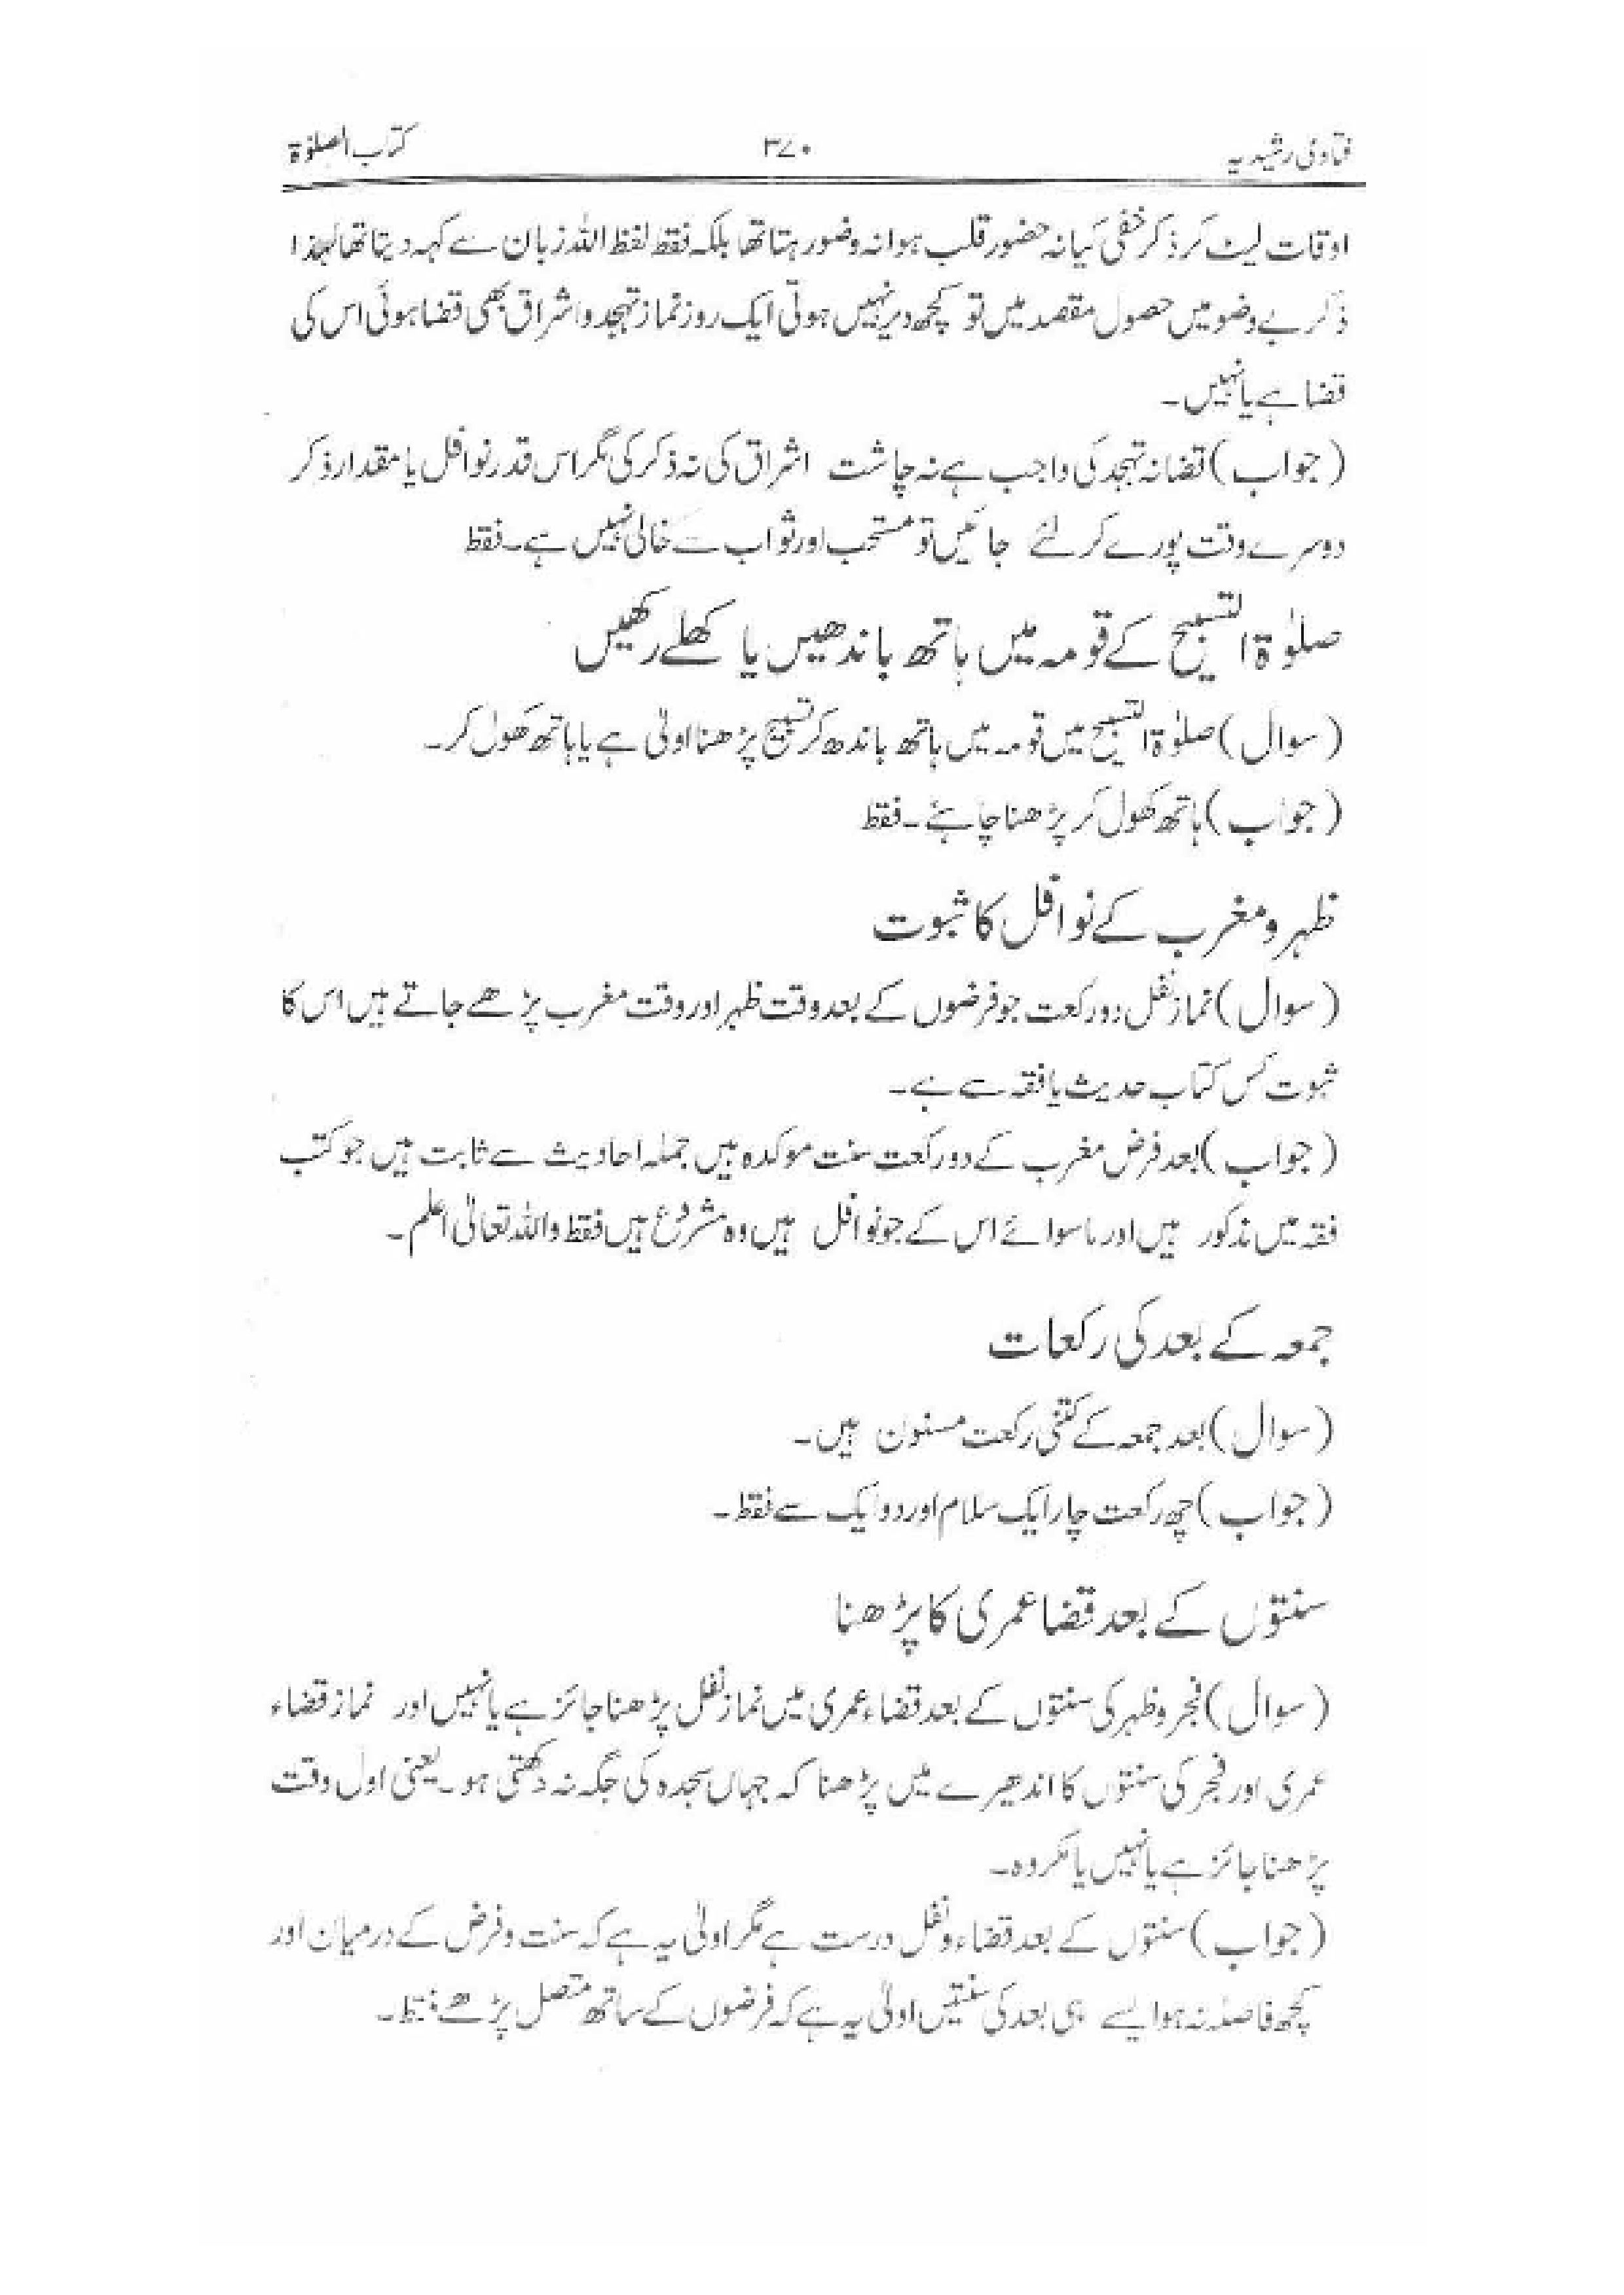 فتاویٰ رشیدیہ ۳۷۰ کتاب الصلوٰۃ
اوقات لیٹ کر ذکر خفی کیا نہ حضور قلب ہوا نہ وضو رہتا تھا بلکہ فقط لفظ اللہ زبان سے کہہ دیتا تھا لہٰذا
ذکر بے وضو میں حصول مقصد میں تو کچھ دیر نہیں ہوتی ایک روز نماز تہجد و اشراق بھی قضا ہوئی اس کی
قضا ہے یا نہیں۔
(جواب) قضا نہ تہجد کی واجب ہے نہ چاشت اشراق کی نہ ذکر کی مگر اس قدر نوافل یا مقدار ذکر
دوسرے وقت پورے کر لئے جائیں تو مستحب اور ثواب سے خالی نہیں ہے۔ فقط
صلوٰۃ التسبیح کے قومہ میں ہاتھ باندھیں یا کھلے رکھیں
(سوال) صلوٰۃ التسبیح میں قومہ میں ہاتھ باندھ کر تسبیح پڑھنا اولیٰ ہے یا ہاتھ کھول کر۔
(جواب) ہاتھ کھول کر پڑھنا چاہئے۔ فقط
ظہر و مغرب کے نوافل کا ثبوت
(سوال) نماز نفل دو رکعت جو فرضوں کے بعد وقت ظہر اور وقت مغرب پڑھے جاتے ہیں اس کا
ثبوت کس کتاب حدیث یا فقہ سے ہے۔
(جواب) بعد فرض مغرب کے دو رکعت سنت موکدہ ہیں جملہ احادیث سے ثابت ہیں جو کتب
فقہ میں مذکور ہیں اور ماسوائے اس کے جو نوافل ہیں وہ مشروع ہیں فقط واللہ تعالیٰ اعلم۔
جمعہ کے بعد کی رکعات
(سوال) بعد جمعہ کے کتنی رکعت مسنون ہیں۔
(جواب) چھ رکعت چار ایک سلام اور دو ایک سے فقط۔
سنتوں کے بعد قضا عمری کا پڑھنا
(سوال) فجر و ظہر کی سنتوں کے بعد قضاء عمری میں نماز نفل پڑھنا جائز ہے یا نہیں اور نماز قضاء
عمری اور فجر کی سنتوں کا اندھیرے میں پڑھنا کہ جہاں سجدہ کی جگہ نہ دکھتی ہو۔ یعنی اول وقت
پڑھنا جائز ہے یا نہیں یا مکروہ۔
(جواب) سنتوں کے بعد قضاء و نفل درست ہے مگر اولیٰ یہ ہے کہ سنت و فرض کے درمیان اور
کچھ فاصلہ نہ ہو ایسے ہی بعد کی سنتیں اولیٰ یہ ہے کہ فرضوں کے ساتھ متصل پڑھے فقط۔